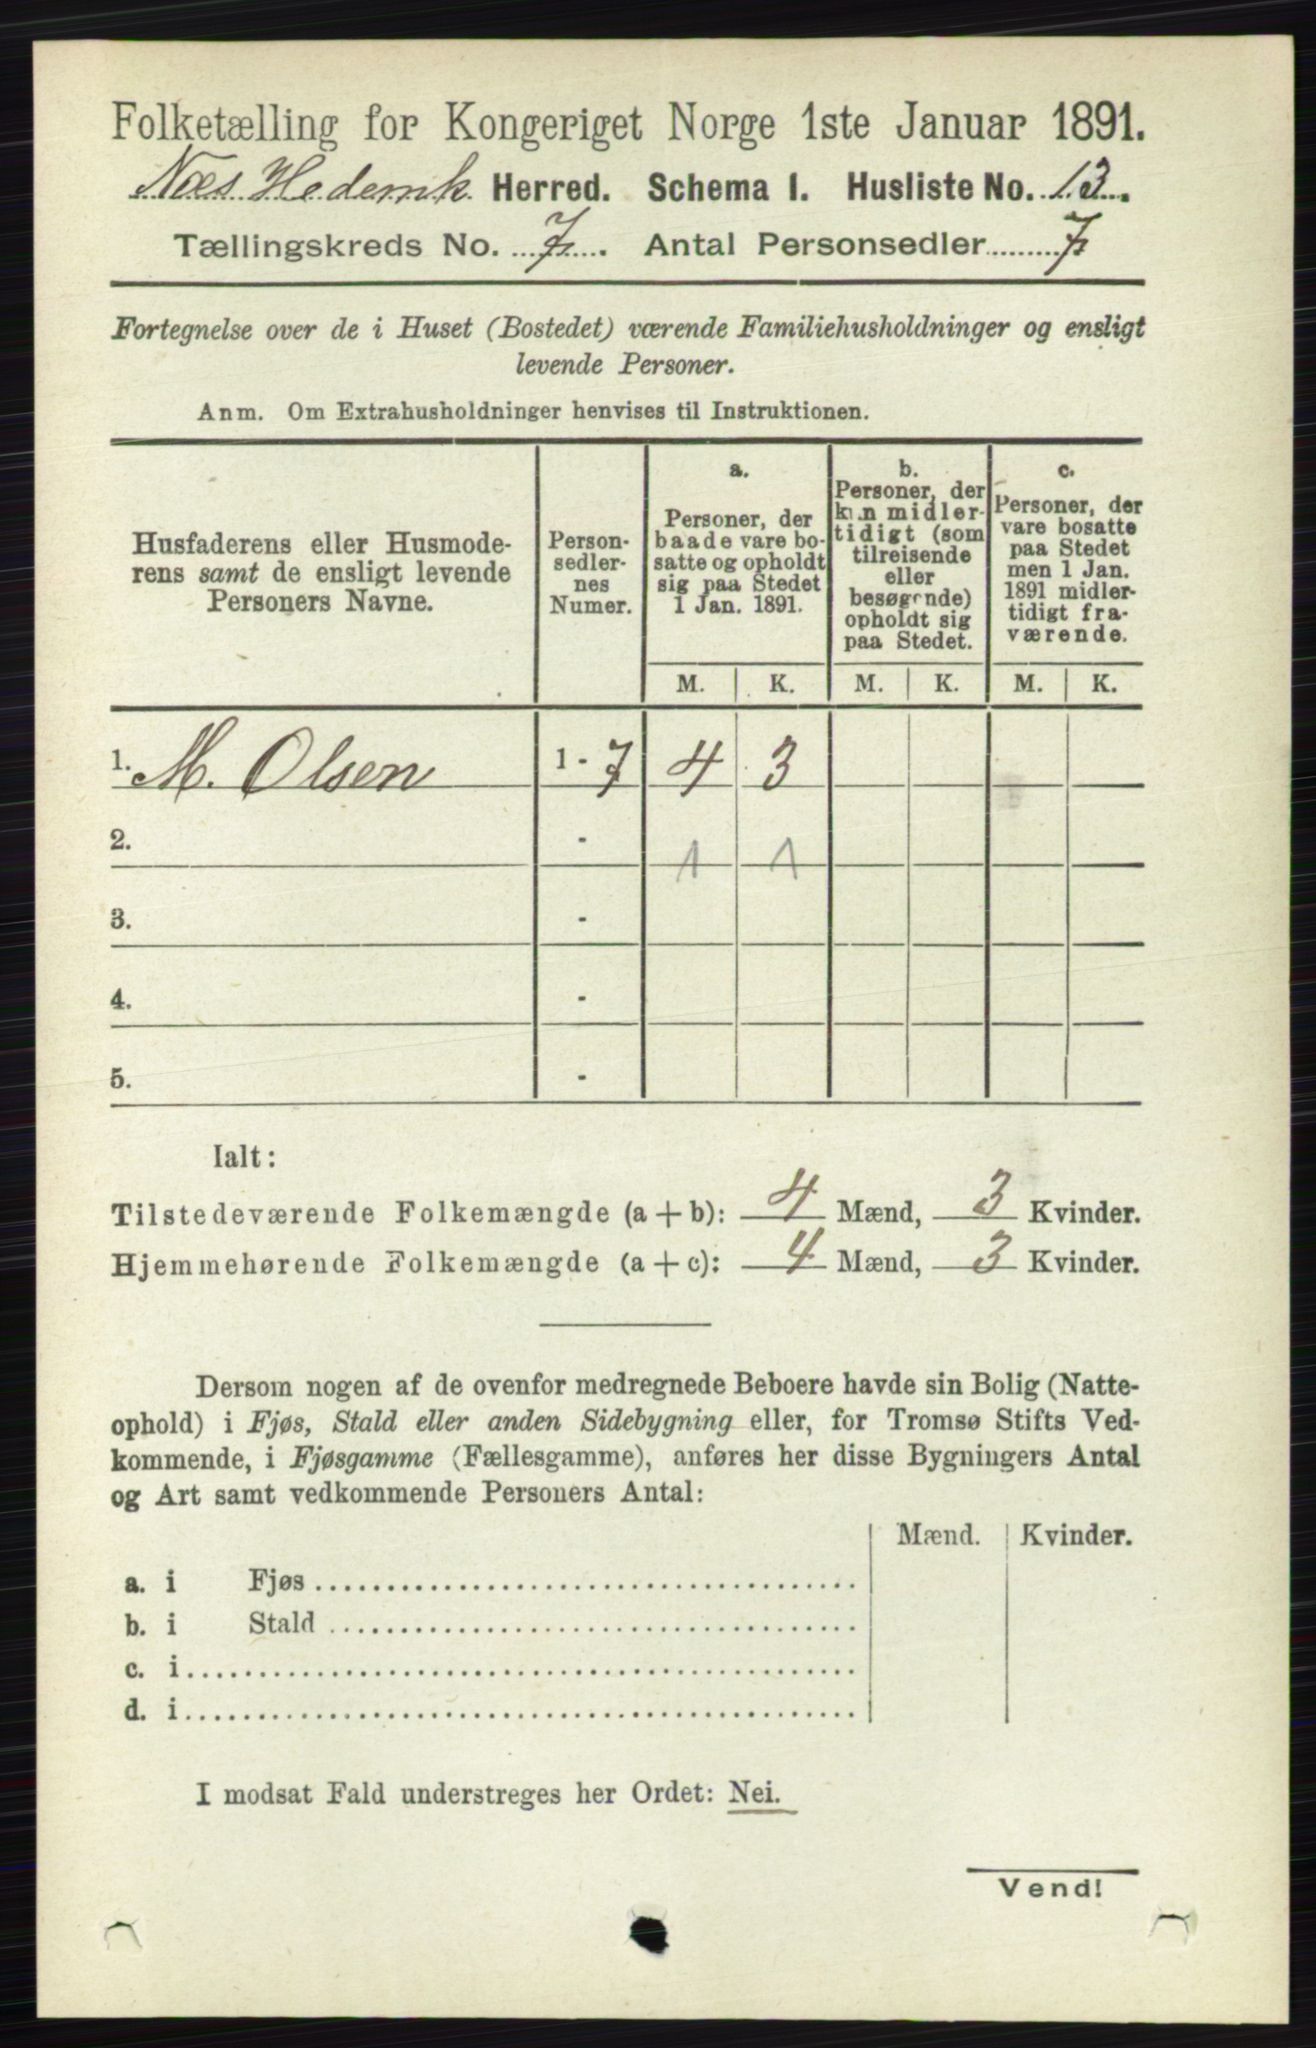 Folketælling for Kongeriget Norge 1ste Januar 1891.
Næs Hedemk Herred. Schema I. Husliste No. 13.
Tællingskreds No. 7. Antal Personsedler 7
Fortegnelse over de i Huset (Bostedet) værende Familiehusholdninger og ensligt
levende Personer.
Anm. Om Extrahusholdninger henvises til Instruktionen.
Husfaderens eller Husmode-
rens samt de ensligt levende
Personers Navne.
Person-
sedler-
nes
Numer.
a.
Personer, der
baade vare bo-
satte og opholdt
sig paa Stedet
1 Jan. 1891.
b.
Personer, der
kun midler-
tidigt (som
tilreisende
eller
besøgende)
opholdt sig
paa Stedet.
c.
Personer, der
vare bosatte
paa Stedet
men 1 Jan.
1891 midler-
tidigt fra-
værende.
M. K. M. K. M. K.
1. M. Olsen 1 - 7 4 3
2. - 1 1
3. -
4. -
5. -
Ialt:
Tilstedeværende Folkemængde (a + b): 4 Mænd, 3 Kvinder.
Hjemmehørende Folkemængde (a + c): 4 Mænd, 3 Kvinder.
Dersom nogen af de ovenfor medregnede Beboere havde sin Bolig (Natte-
ophold) i Fjøs, Stald eller anden Sidebygning eller, for Tromsø Stifts Ved-
kommende, i Fjøsgamme (Fællesgamme), anføres her disse Bygningers Antal
og Art samt vedkommende Personers Antal:
Mænd. Kvinder.
a. i Fjøs
b. i Stald
c. i
d. i
I modsat Fald understreges her Ordet: Nei.
Vend!